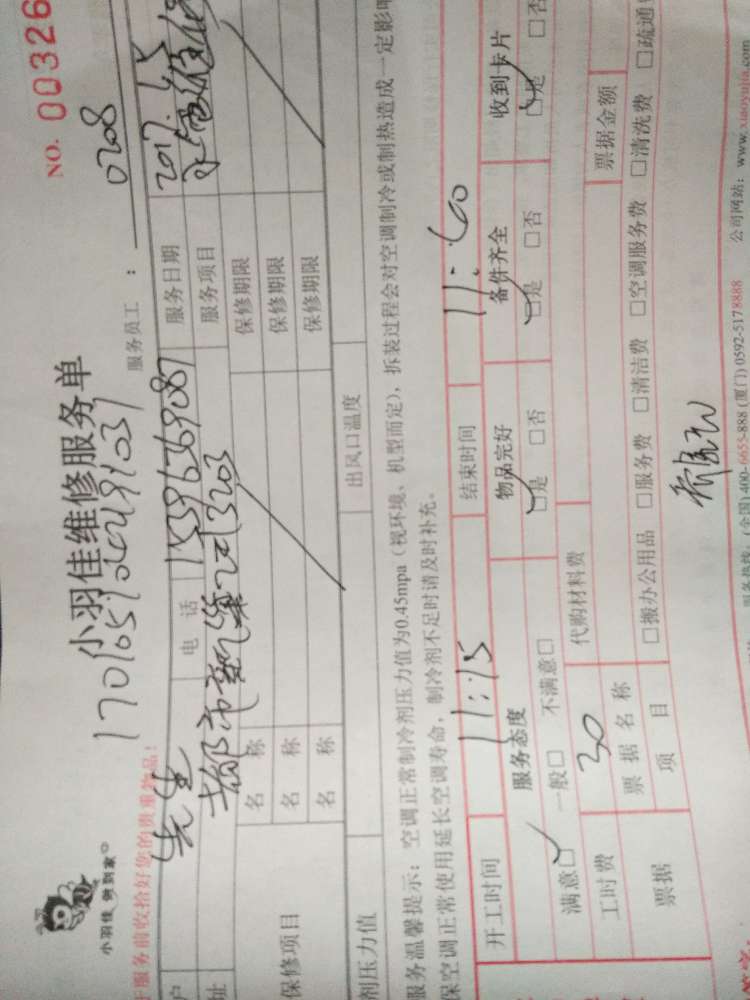 小羽佳 做到家
小羽佳维修服务单
NO. 00326
服务员工 : 0208
于服务前收拾好您的贵重物品!
户 先生 电 话 15596369087 服务日期 2017.4.5
址 服务项目
保修项目
名 称 保修期限
名 称 保修期限
名 称 保修期限
剂压力值 出风口温度
服务温馨提示: 空调正常制冷剂压力值为0.45mpa (视环境、机型而定), 拆装过程会对空调制冷或制热造成一定影响
保空调正常使用延长空调寿命, 制冷剂不足时请及时补充。
开工时间 11:15 结束时间 11:60
服务态度 物品完好 备件齐全 收到卡片
满意□ 一般□ 不满意□ □是 □否 □是 □否 □是 □否
工时费 30 代购材料费
票据 票 据 名 称 票据金额
项 目 □搬办公用品 □服务费 □清洁费 □空调服务费 □清洗费 □疏通
服务热线: (全国) 400-6655-888 (厦门) 0592-5178888 公司网站: www.xiaoyujia.com